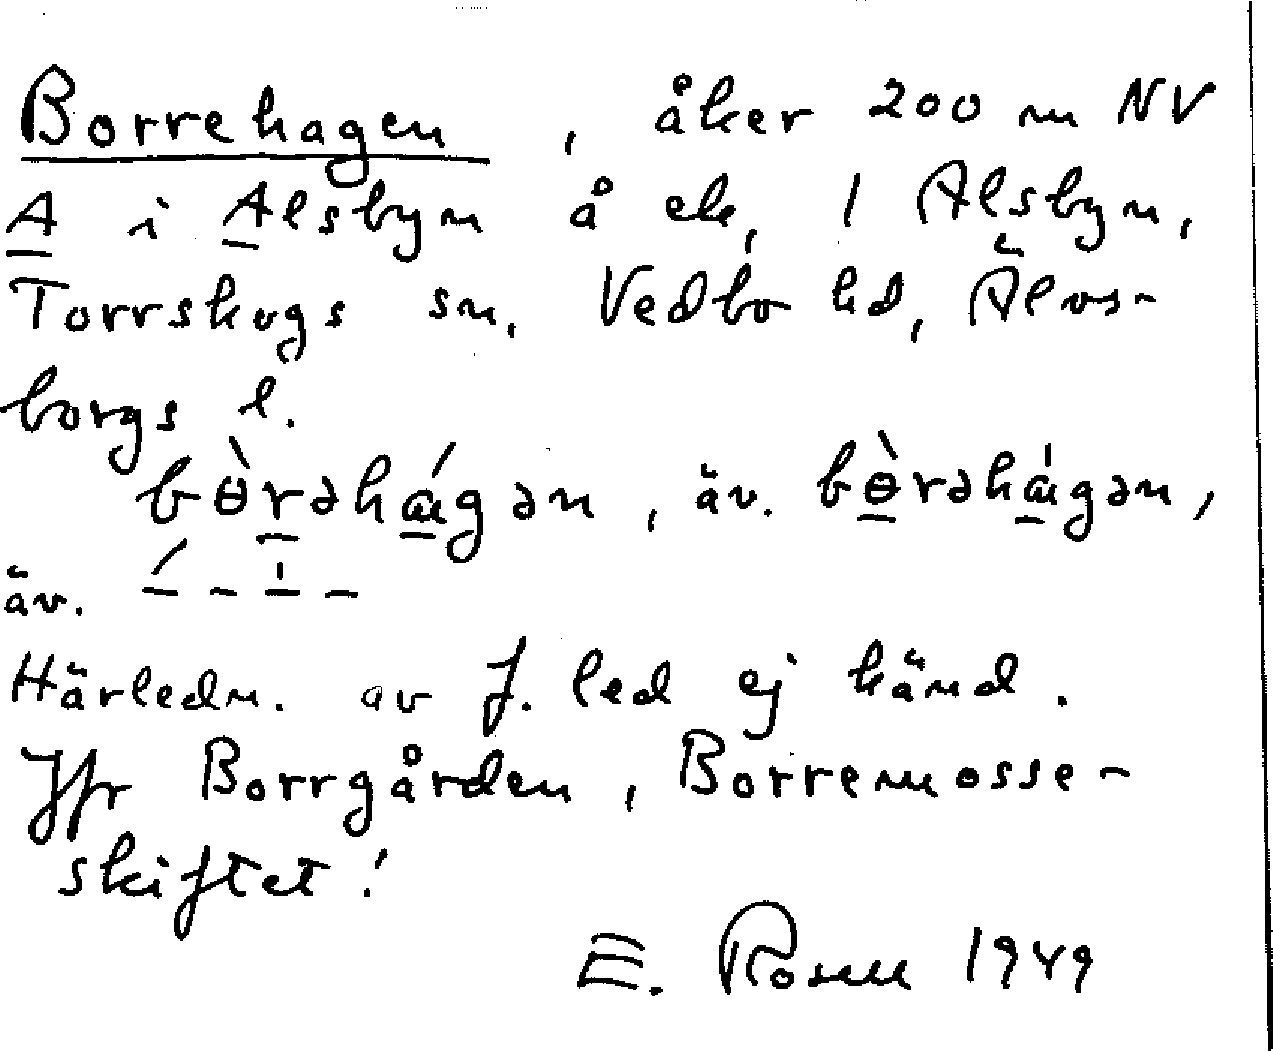 Borrehagen, åker 200 m NV
A i Alsbyn å ek, 1 Alsbyn,
Torrskogs sn, Vedbo hd, Älvs-
borgs l.
bɵ̀rəhágən, äv. bɵ̀rəhágən,
äv. — - — -
Härledn. av f. led ej känd.
Jfr Borrgården, Borremosse-
skiftet!
E. Rosell 1949